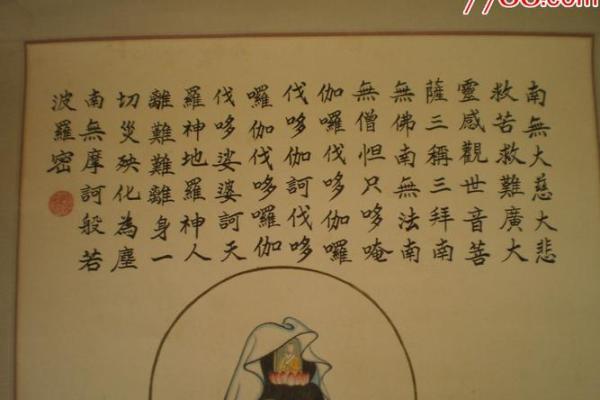 南無大慈大悲
救苦救難廣大
靈感觀世音菩
薩三稱三拜南
無佛南無法南
無僧怛只哆唵
伽囉伐哆伽囉
伐哆伽訶伐哆
囉伽伐哆囉伽
伐哆娑婆訶天
羅神地羅神人
離難難離身一
切災殃化為塵
南無摩訶般若
波羅密
7788.com